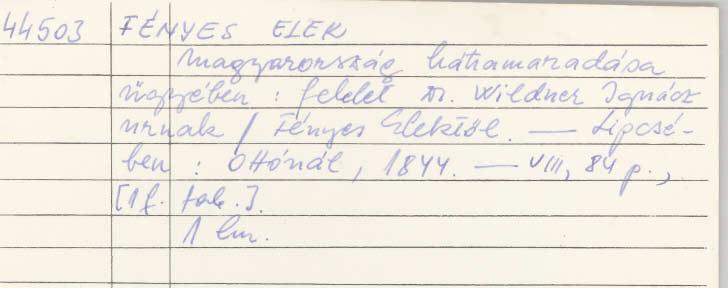 44503 FÉNYES ELEK
Magyarország hátramaradása
ügyében : felelet Dr. Wildner Ignácz
urnak / Fényes Elektől. — Lipcsé-
ben : Ottónál, 1844. — VIII, 84 p.,
[1 f. tab.].
1 lm.